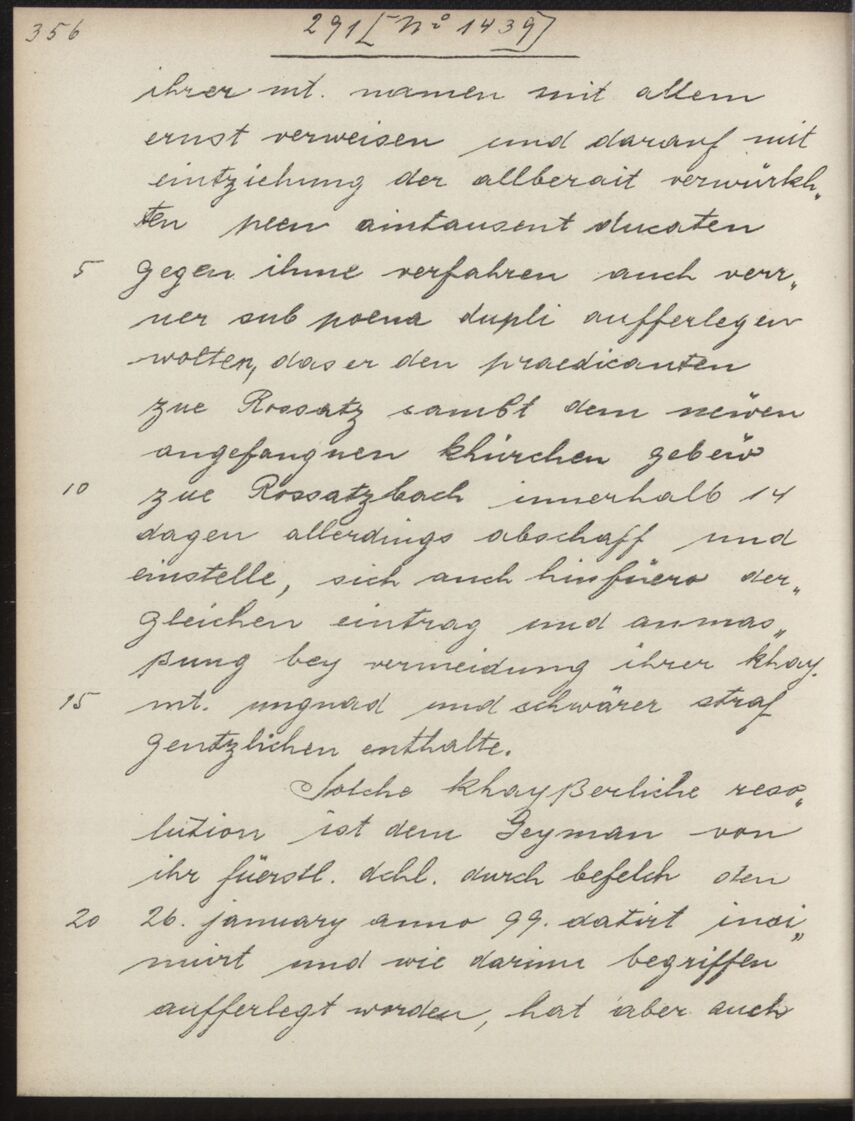 356 291 [Nº 1439]
ihrer mt. namen mit allem
ernst verweisen und darauf mit
eintziehung der allberait verwürkh„
ten peen aintausent ducaten
5 gegen ihme verfahren auch verr„
ner sub poena dupli aufferlegen
wolten, das er den praedicanten
zue Rossatz sambt dem newen
angefangnen khürchen gebew
10 zue Rossatzbach innerhalb 14
dagen allerdings abschaff und
einstelle, sich auch hinfüero der„
gleichen eintrag und anmas„
sung bey vermeidung ihrer khay.
15 mt. ungnad und schwärer straf
gentzlichen enthalte.
Solche khayßerliche reso„
lution ist dem Geyman von
ihr füerstl. dchl. durch befelch den
20 26. january anno 99. datirt insi„
nuirt und wie darinn begriffen
aufferlegt worden, hat aber auch